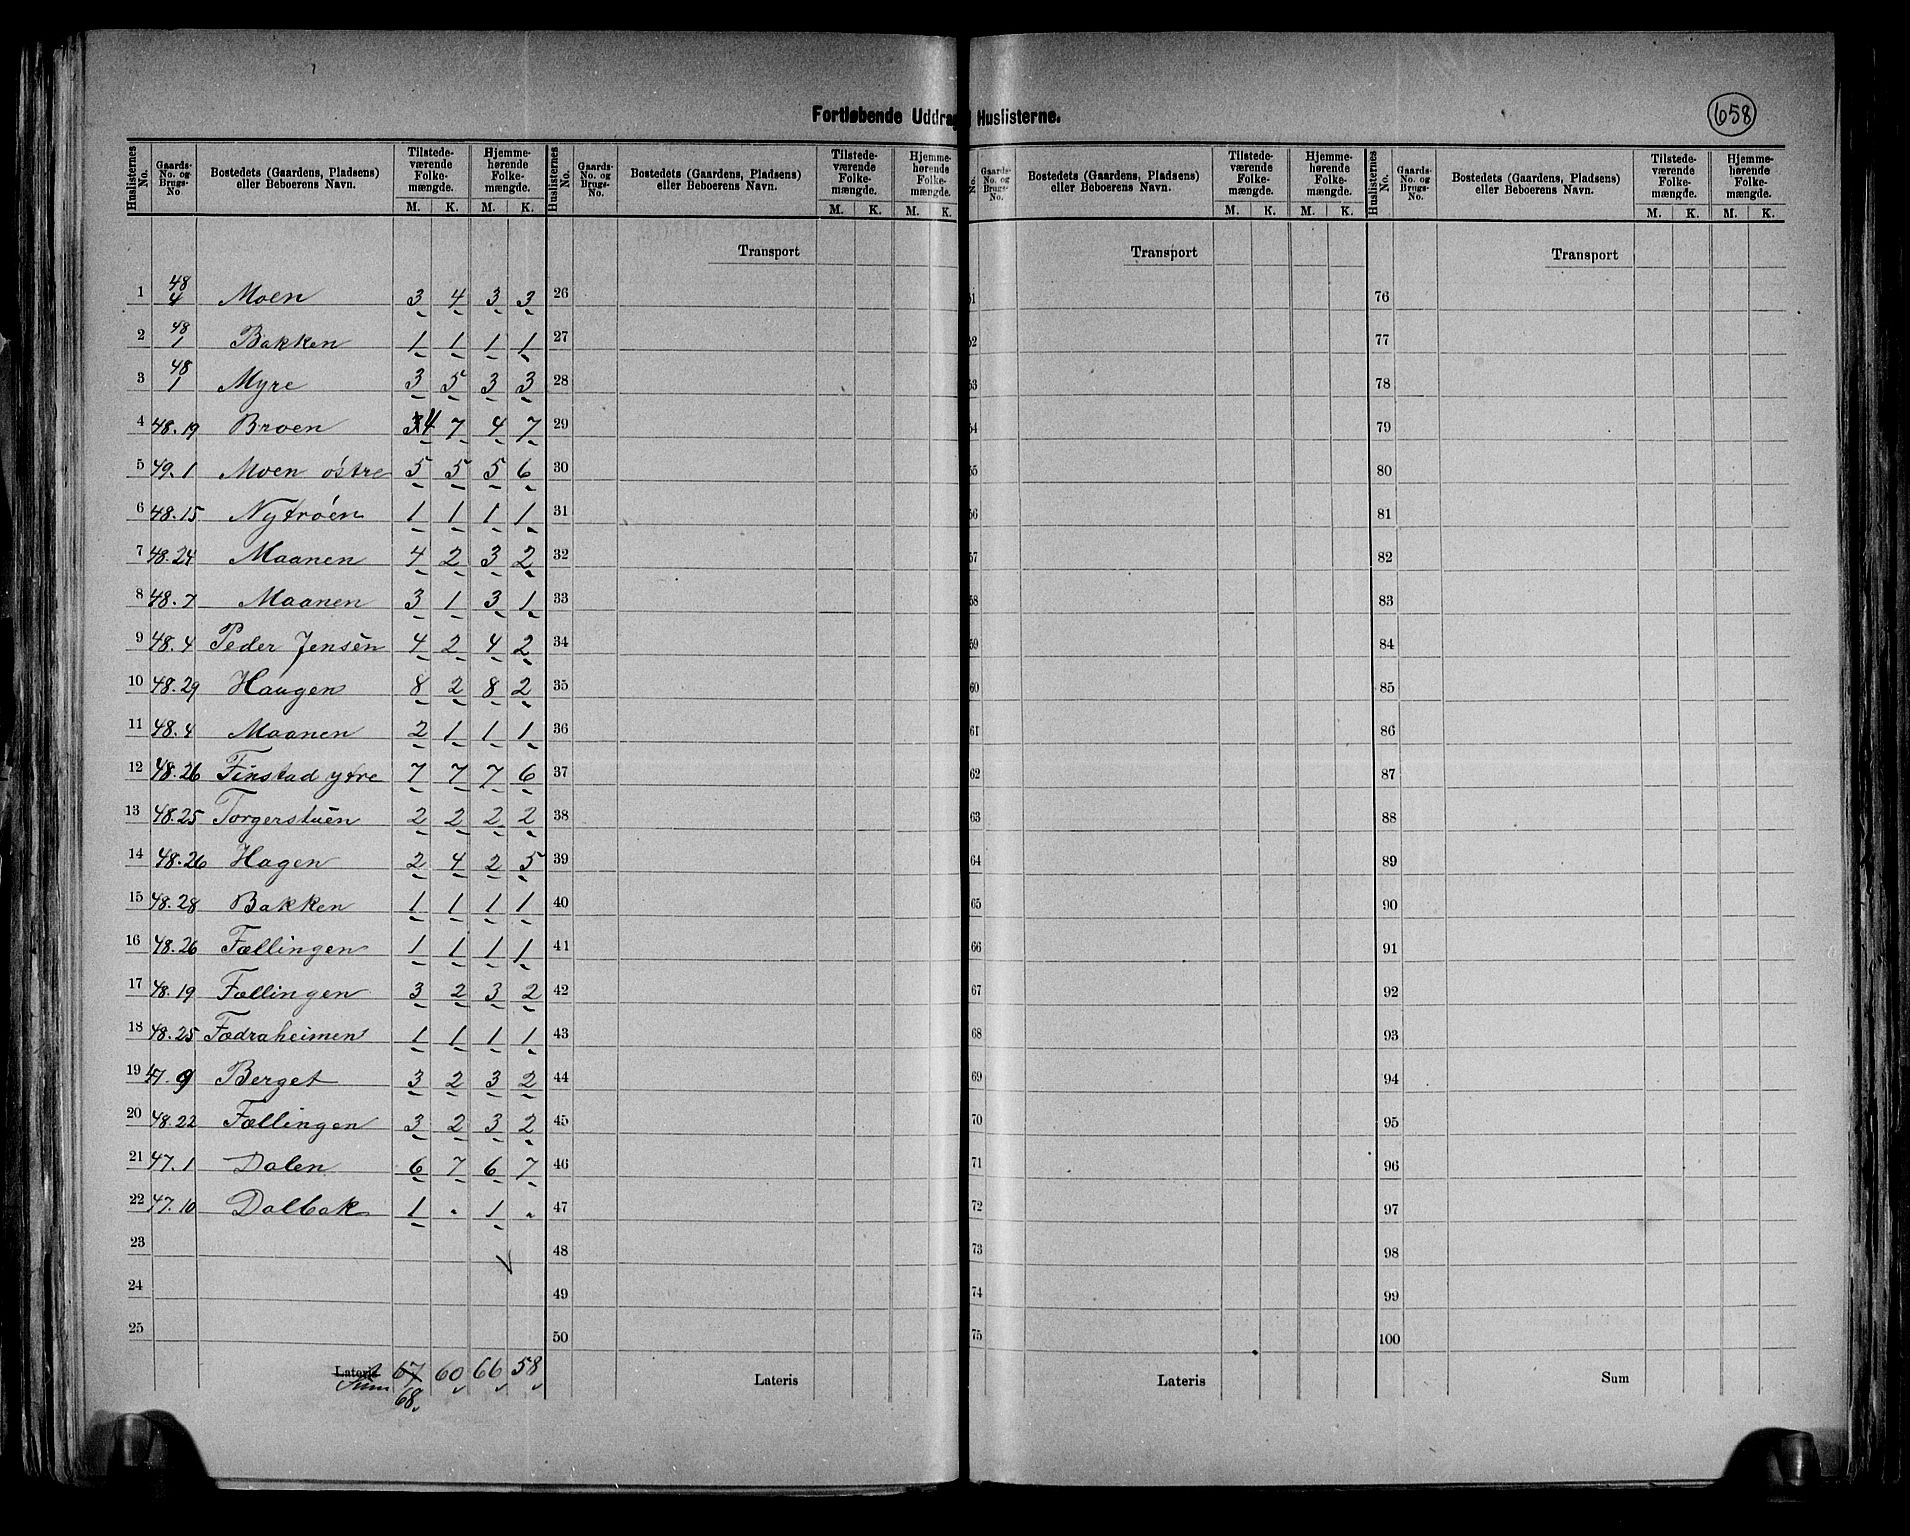 Fortløbende Uddrag Huslisterne.
658
Huslisternes No. | Gaards-No. og Brugs-No | Bostedets (Gaardens, Pladsens) eller Beboerens Navn. | Tilstedeværende Folkemængde. M. K. | Hjemmehørende Folkemængde. M. K.
1 | 48 4 | Moen | 3 | 4 | 3 | 3
2 | 48 1 | Bakken | 1 | 1 | 1 | 1
3 | 48 1 | Myre | 3 | 5 | 3 | 3
4 | 48.19 | Broen | 4 | 7 | 4 | 7
5 | 49.1 | Moen østre | 5 | 5 | 5 | 6
6 | 48.15 | Nytrøen | 1 | 1 | 1 | 1
7 | 48.24 | Maanen | 4 | 2 | 3 | 2
8 | 48.7 | Maanen | 3 | 1 | 3 | 1
9 | 48.4 | Peder Jensen | 4 | 2 | 4 | 2
10 | 48.29 | Haugen | 8 | 2 | 8 | 2
11 | 48.4 | Maanen | 2 | 1 | 1 | 1
12 | 48.26 | Finstad ytre | 7 | 7 | 7 | 6
13 | 48.25 | Torgerstuen | 2 | 2 | 2 | 2
14 | 48.26 | Hagen | 2 | 4 | 2 | 5
15 | 48.28 | Bakken | 1 | 1 | 1 | 1
16 | 48.26 | Fællingen | 1 | 1 | 1 | 1
17 | 48.19 | Fællingen | 3 | 2 | 3 | 2
18 | 48.25 | Fædraheimen | 1 | 1 | 1 | 1
19 | 47.9 | Berget | 3 | 2 | 3 | 2
20 | 48.22 | Fællingen | 3 | 2 | 3 | 2
21 | 47.1 | Dalen | 6 | 7 | 6 | 7
22 | 47.10 | Dalbak | 1 | . | 1 | .
23
24
25
Lateris Sum | 67 68 | 60 | 66 | 58
Huslisternes No. | Gaards-No. og Brugs-No. | Bostedets (Gaardens, Pladsens) eller Beboerens Navn. | Tilstedeværende Folkemængde. M. K. | Hjemmehørende Folkemængde. M. K.
Transport
26
27
28
29
30
31
32
33
34
35
36
37
38
39
40
41
42
43
44
45
46
47
48
49
50
Lateris
No. | Gaards-No. og Brugs-No. | Bostedets (Gaardens, Pladsens) eller Beboerens Navn. | Tilstedeværende Folkemængde. M. K. | Hjemmehørende Folkemængde. M. K.
Transport
51
52
53
54
55
56
57
58
59
60
61
62
63
64
65
66
67
68
69
70
71
72
73
74
75
Lateris
Huslisternes No. | Gaards-No. og Brugs-No. | Bostedets (Gaardens, Pladsens) eller Beboerens Navn. | Tilstedeværende Folkemængde. M. K. | Hjemmehørende Folkemængde. M. K.
Transport
76
77
78
79
80
81
82
83
84
85
86
87
88
89
90
91
92
93
94
95
96
97
98
99
100
Sum